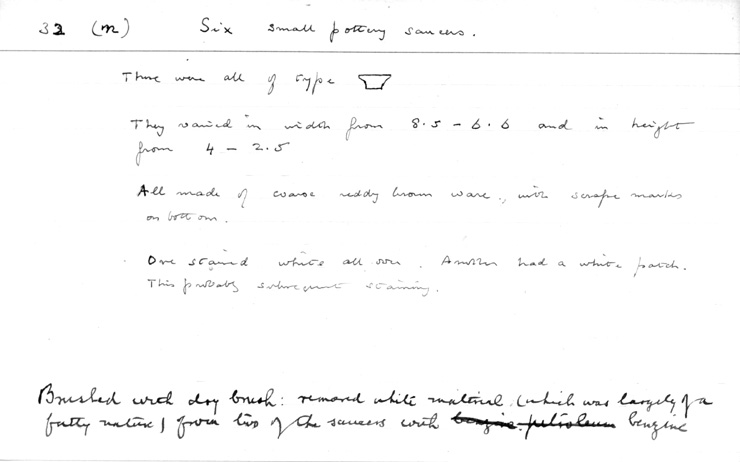 32 (m) Six small pottery saucers.
These were all of type
They varied in width from 8.5 - 6.6 and in height
from 4 - 2.5
All made of coarse reddy brown ware, with scrape marks
on bottom.
One stained white all over. Another had a white patch.
This probably subsequent staining.
Brushed with dry brush: removed white material (which was largely of a
fatty nature) from two of the saucers with benzine petroleum benzine